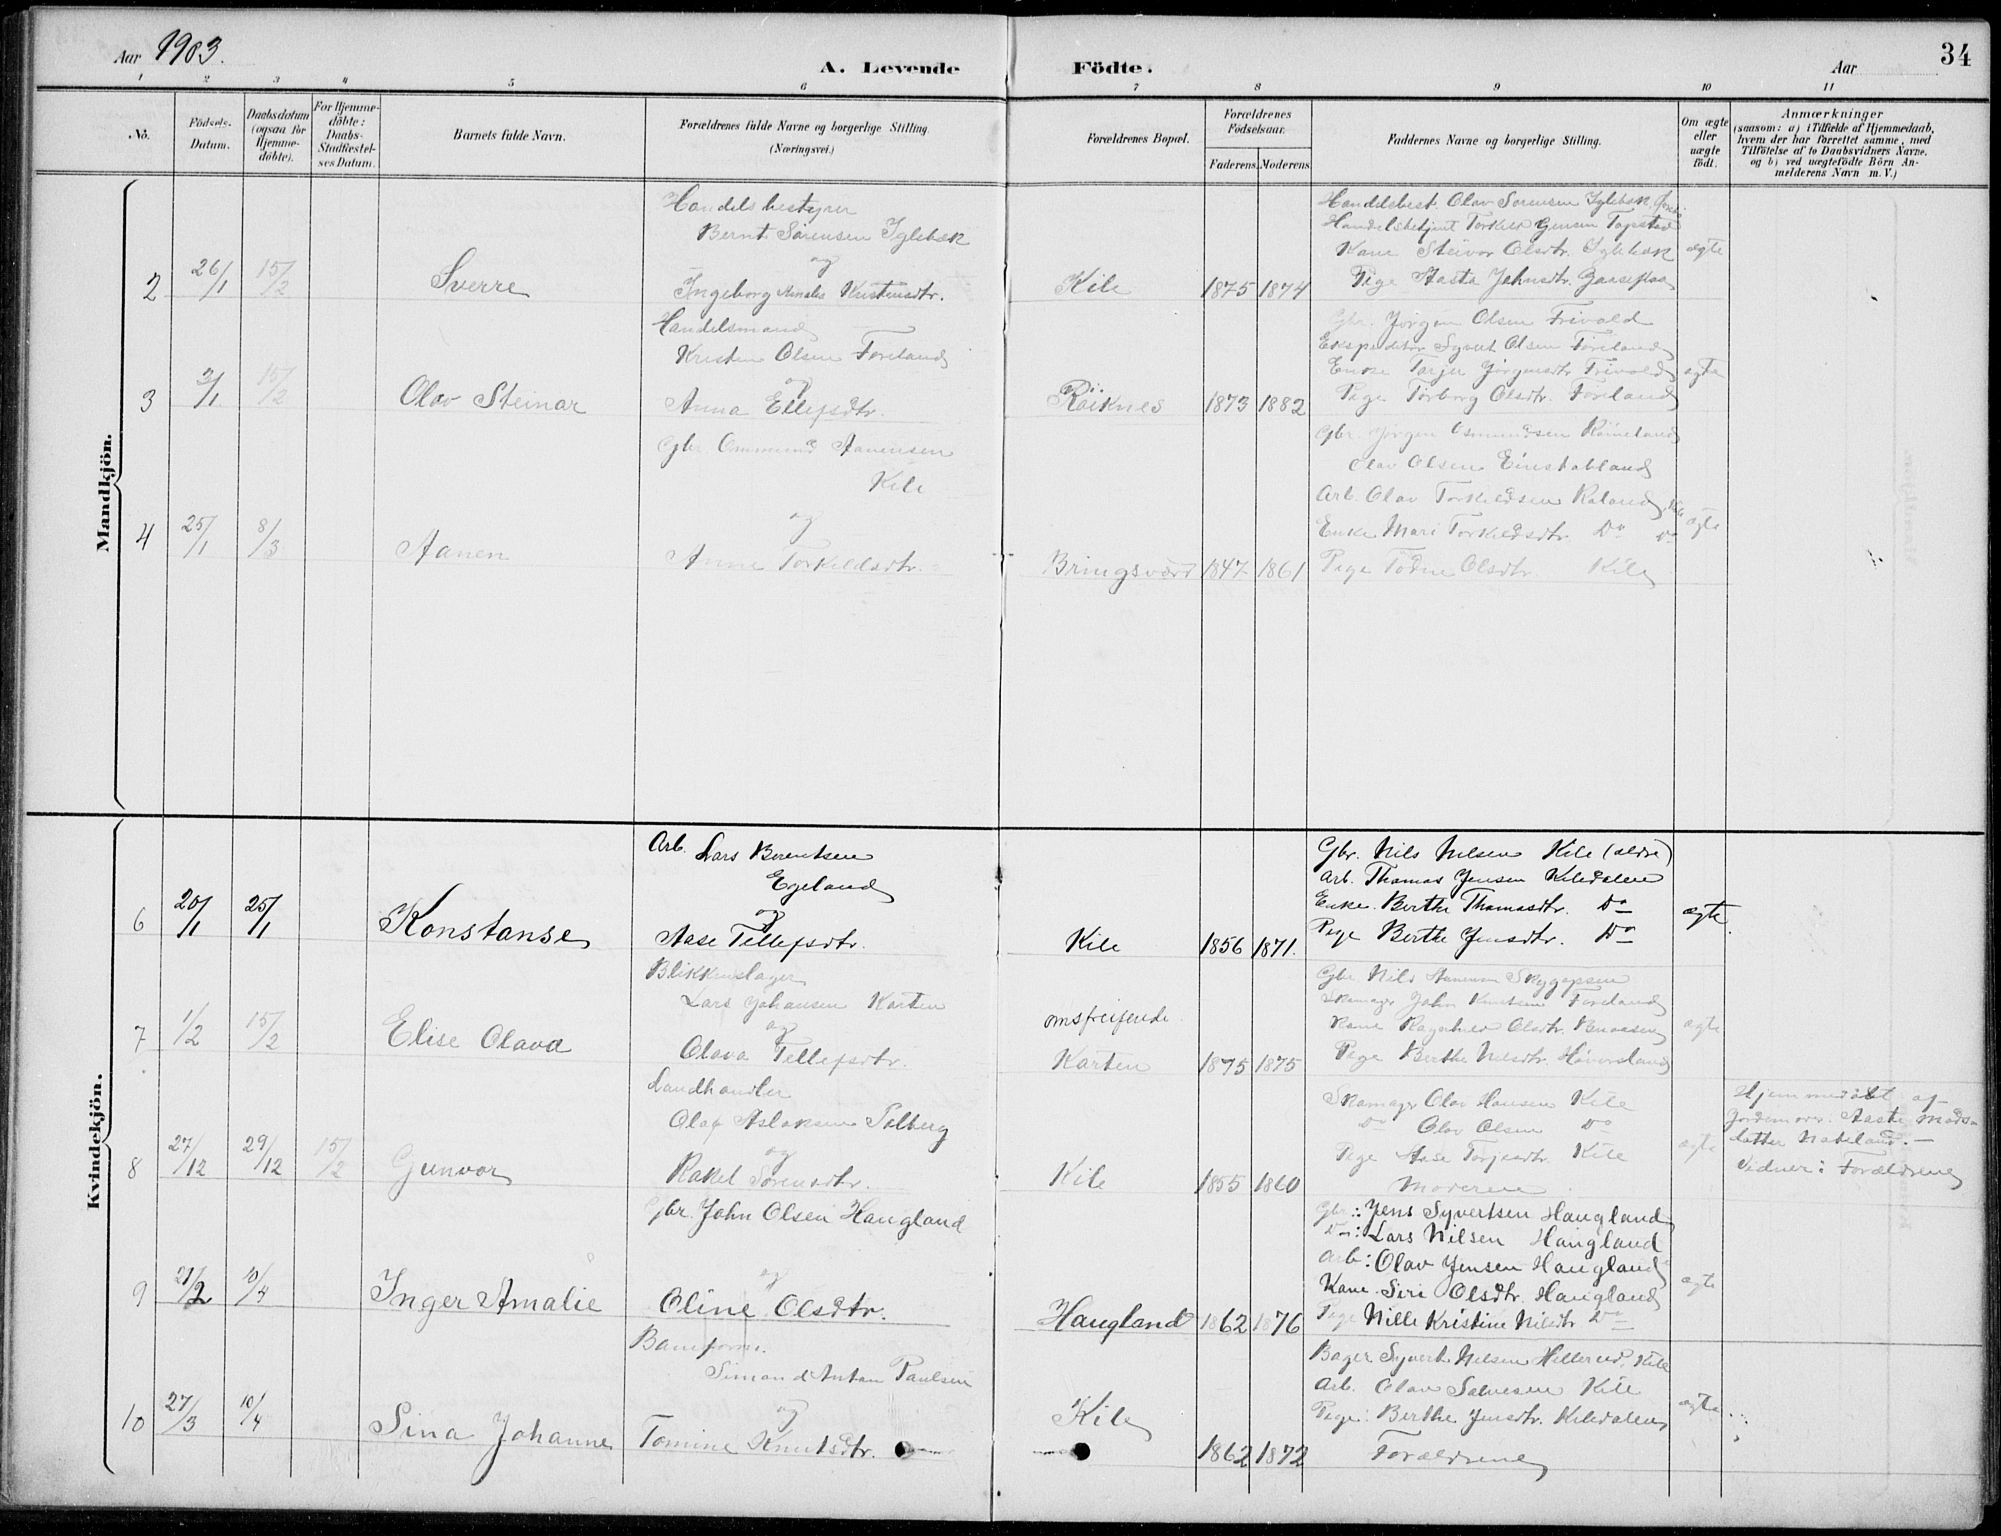 Aar 1903.
A. Levende
Födte.
Aar
34
1 2 3 4 5 6 7 8 9 10 11
No.
Födsels-Datum.
Daabsdatum (ogsaa for Hjemme-döbte).
For Hjemme-döbte: Daabs-Stadfæstel-ses Datum.
Barnets fulde Navn.
Forældrenes fulde Navne og borgerlige Stilling.
(Næringsvei.)
Forældrenes Bopæl.
Forældrenes Födselsaar.
Faderens. Moderens
Faddernes Navne og borgerlige Stilling.
Om ægte eller uægte födt.
Anmærkninger
(saasom: a) i Tilfælde af Hjemmedaab,
hvem der har forrettet samme, med
Tilföielse af to Daabsvidners Navne,
og b) ved uægtefödte Börn An-
melderens Navn m. V.)
Mandkjön.
2 26/1 15/2 Sverre
Handelsbestyrer
Bernt Sørensen Iglebæk
og
Ingeborg Amalie Kristensdtr.
Kile 1875 1874
Handelsbest. Olav Sørensen Iglebæk
Handelsbetjent Torkild Jensen Tapstad
Kone Steivor Olsdtr. Iglebæk
Pige Aasta Johnsdtr. Gaaseflaa
ægte
3 2/1 15/2 Olav Steinar
Handelsmand
Kristen Olsen Föreland
og
Anna Ellefsdtr.
Röiknes 1873 1882
Gbr. Jörgen Olsen Frivold
Ekspeditör Syvert Olsen Föreland
Enke Tarjer Jörgensdtr. Frivold
Pige Torborg Olsdtr. Föreland
ægte
4 25/1 8/3 Aanen
Gbr Ommund Aanensen
Kile
og
Anne Torkildsdtr.
Bringsværd 1847 1861
Gbr. Jörgen Osmundsen
Olav Olsen Einstabland
Arb. Olav Torkildsen Röland, Kile
Enke Mari Torkildsdtr. Do Do
Pige Tödne Olsdtr. Kile
ægte
Kvindekjön.
6 20/1 25/1 Konstanse
Arb. Lars Berentsen
Egeland
og
Aase Tellefsdtr.
Kile 1856 1871.
Gbr. Nils Nilsen Kile (ældre)
Arb. Thomas Jensen Kiledalen
Enke. Berthe Thomasdtr. Do
Pige Berthe Jensdtr. Do
ægte.
7 1/2 15/2 Elise Olava
Blikkenslager
Lars Johansen Karten
og
Olava Tellefsdtr.
omstreifende
Karten 1875 1875
Gbr Nils Aanensen
Skomager John Knutsen Föreland
Kone Ragnhild Olsdtr.
Pige Berthe Nilsdtr. Höversland
ægte
8 27/12 29/12 15/2 Gunvor
Landhandler
Olaf Aslaksen Solberg
og
Rakel Sørensdtr.
Kile 1855 1860
Skomager Olav Hansen Kile
Do Olav Olsen Do
Pige Aase Torjesdtr. Kile
Moderen
ægte
Hjemmedöbt af
Jordemor Aaste Mads-
datter Nabeland. –
Vidner: Forældrene
9 21/2 10/4 Inger Amalie
Gbr. John Olsen Haugland
og
Oline Olsdtr.
Haugland 1862 1876
Gbr.: Jens Syvertsen Haugland
Do: Lars Nilsen Haugland
Arb: Olav Jensen Haugland
Kone. Siri Olsdtr. Haugland
Pige Nille Kristine Nilsdtr Do
ægte
10 27/3 10/4 Sina Johanne
Baneform.
Simond Anton Paulsen
og
Tomine Knutsdtr.
Kile
1862 1872
Bager Syvert Nilsen Hillerud, Kile
Arb. Olav Salvesen Kile
Pige: Berthe Jensdtr. Kiledalen
Forældrene
ægte